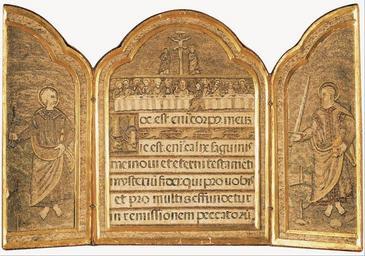 Hoc est eni corpꝰ meū
Hic est eni calix sāguinis
mei noui et eterni testamēti
mysteriū fidei qui pro uobis
et pro multis effundetur
in remissionem peccatorū